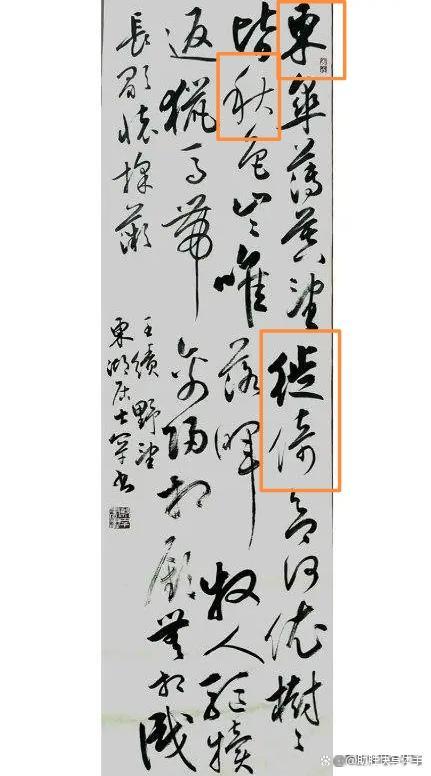 東皋薄暮望徙倚欲何依樹々
皆秋色山々唯落暉牧人驅犢
返獵馬帶禽歸相顧無相識
長歌懷採薇
王績野望
東湖居士軍書